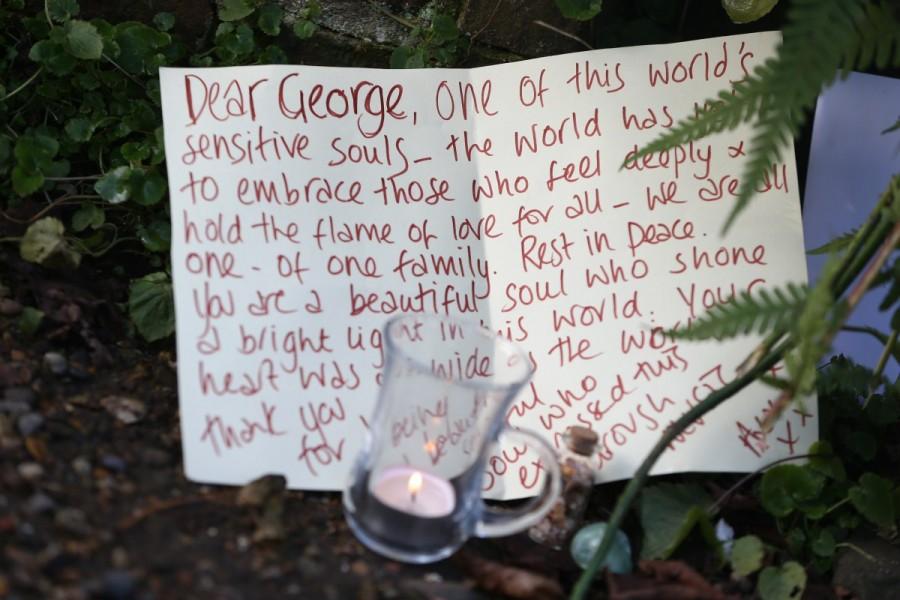 Dear George, one of this world's
sensitive souls - the world has
to embrace those who feel deeply &
hold the flame of love for all - we are all
one - of one family. Rest in peace.
You are a beautiful soul who shone
a bright light in this world. Your
heart was wide as the world
thank you who
for being soul expressed this
beautiful through